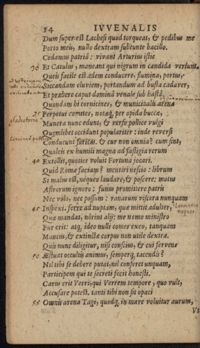 14 IVVENALIS
Dum superest Lachesi quod torqueat, & pedibus me
Porto meis, nullo dextram subeunte bacillo.
Cedamus patria: vivant Arturius istic
30 Et Catulus, maneant qui nigrum in candida vertunt,
Queis facile est ædem conducere, flumina, portus,
Siccandam eluviem, portandum ad busta cadaver,
Et præbere caput domina venale sub hasta.
Quondam hi cornicines, & municipalis arenæ
35 Perpetui comites, notæq; per oppida buccæ,
Munera nunc edunt, & verso pollice vulgi
Quemlibet occidunt populariter: inde reversi
Conducunt foricas. & cur non omnia? cum sint,
Quales ex humili magna ad fastigia rerum
40 Extollit, quoties voluit Fortuna jocari.
Quid Romæ faciam? mentiri nescio: librum
Si malus est, nequeo laudare, & poscere: motus
Astrorum ignoro: funus promittere patris
Nec volo, nec possum: ranarum viscera nunquam
45 Inspexi. ferre ad nuptam, quæ mittit adulter,
Quæ mandat, norint alij: me nemo ministro
Fur erit: atq; ideo nulli comes exeo, tanquam
Mancus, & extinctæ corpus non utile dextræ.
Quis nunc diligitur, nisi conscius, & cui fervens
50 Æstuat occultis animus, semperq; tacendis?
Nil tibi se debere putat, nil conferet unquam,
Participem qui te secreti fecit honesti.
Carus erit Verri, qui Verrem tempore, quo vult,
Accusare potest. tanti tibi non sit opaci
55 Omnis arena Tagi, quodq; in mare volvitur aurum,